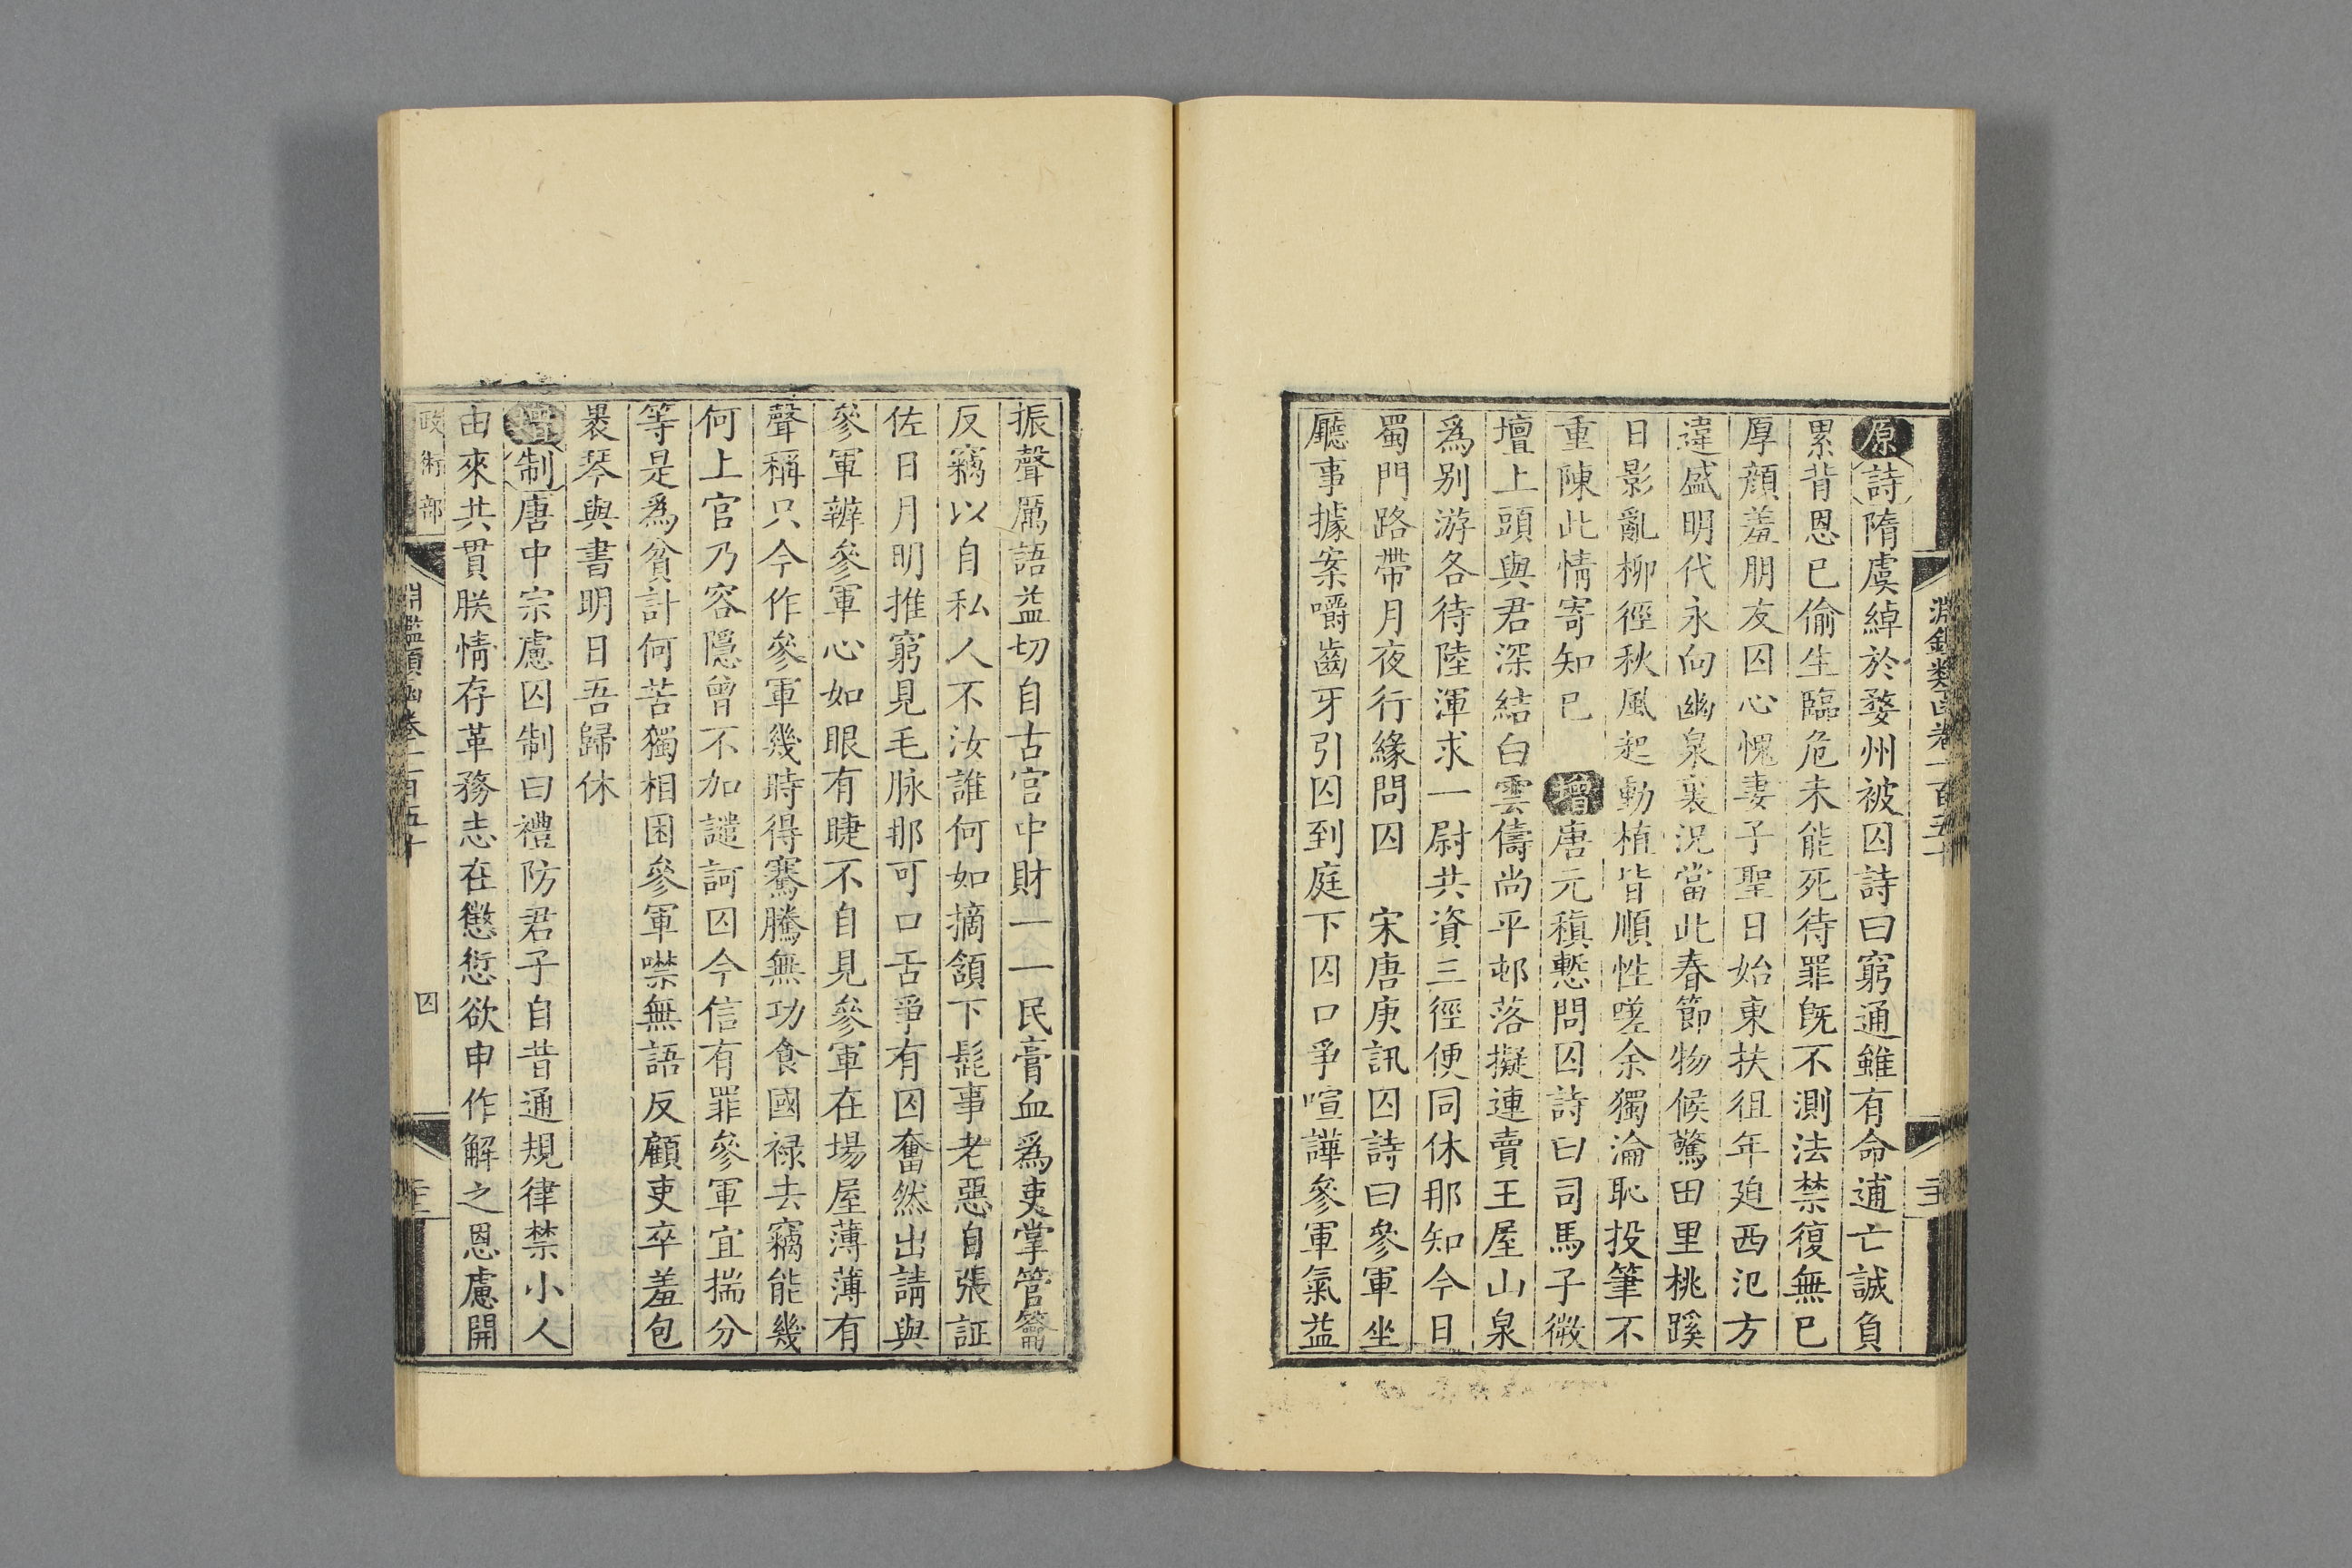 淵鑑類函卷一百五十
原詩隋虞綽於婺州被囚詩曰窮通雖有命逋亡誠負
累背恩已偷生臨危未能死待罪旣不測法禁復無已
厚顔羞朋友囚心愧妻子聖日始東扶徂年迫西汜方
違盛明代永向幽泉裏況當此春節物候驚田里桃蹊
日影亂柳徑秋風起動植皆順性嗟余獨淪恥投筆不
重陳此情寄知已 增唐元稹慙問囚詩曰司馬子微
壇上頭與君深結白雲儔尚平邨落擬連賣王屋山泉
爲別游各待陸渾求一尉共資三徑便同休那知今日
蜀門路帶月夜行緣問囚 宋唐庚訊囚詩曰參軍坐
廳事據案嚼齒牙引囚到庭下囚口爭喧譁參軍氣益
振聲厲語益切自古官中財一一民膏血爲吏掌管籥
反竊以自私人不汝誰何如摘頷下髭事老惡自張証
佐日月明推窮見毛脉那可口舌爭有囚奮然出請與
參軍辨參軍心如眼有睫不自見參軍在場屋薄薄有
聲稱只今作參軍幾時得騫騰無功食國祿去竊能幾
何上官乃容隱曾不加譴訶囚今信有罪參軍宜揣分
等是爲貧計何苦獨相困參軍噤無語反顧吏卒羞包
裹琴與書明日吾歸休
增制唐中宗慮囚制曰禮防君子自昔通規律禁小人
由來共貫朕情存革務志在懲愆欲申作解之恩慮開
政術部
淵鑑類函卷一百五十
囚